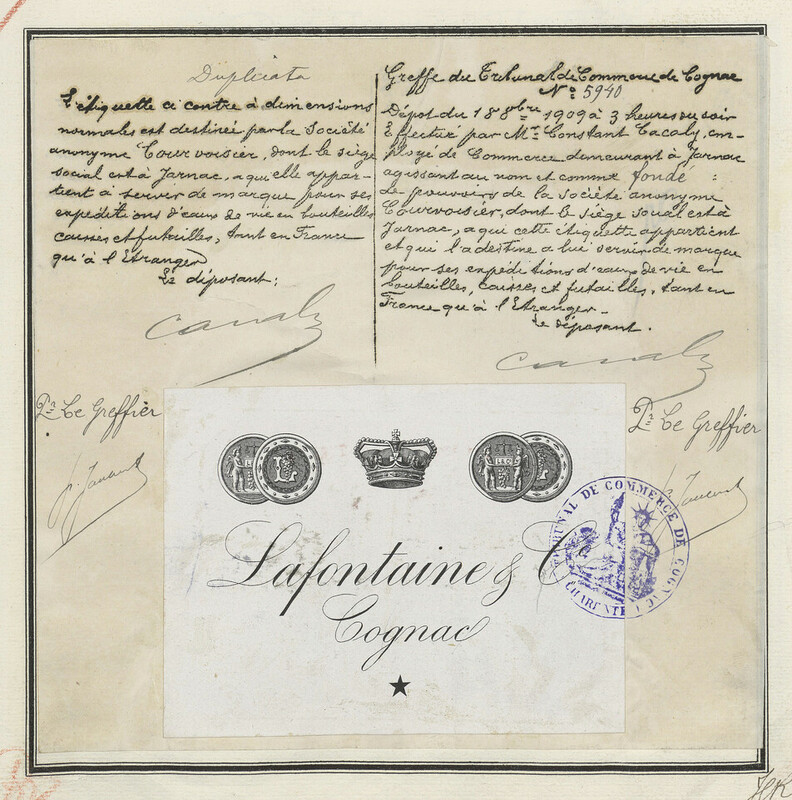 Duplicata
L'étiquette ci contre à dimensions
normales est destinée par la Société
anonyme Courvoisier, dont le siège
social est à Jarnac, a qui elle appar-
tient à servir de marque pour ses
expéditions d'eaux de vie en bouteilles
caisses et futailles, tant en France
qu'à l'Etranger
Le déposant:
Greffe du Tribunal de Commerce de Cognac
N° 5940
Dépot du 18 8bre 1909 à 3 heures du soir
Effectué par Mr. Constant Cacaly, em-
ployé de Commerce demeurant à Jarnac
agissant au nom et comme fondé :
de pouvoirs de la Société anonyme
Courvoisier, dont le siège social est à
Jarnac, a qui cette étiquette appartient
et qui l'a destine a lui servir de marque
pour ses expéditions d'eaux de vie en
bouteilles, caisses et futailles, tant en
France qu'à l'Etranger-
Le déposant.
Pr Le Greffier
Pr Le Greffier
L
Lafontaine & C
Cognac
TRIBUNAL DE COMMERCE DE COGNAC
CHARENTE
HK